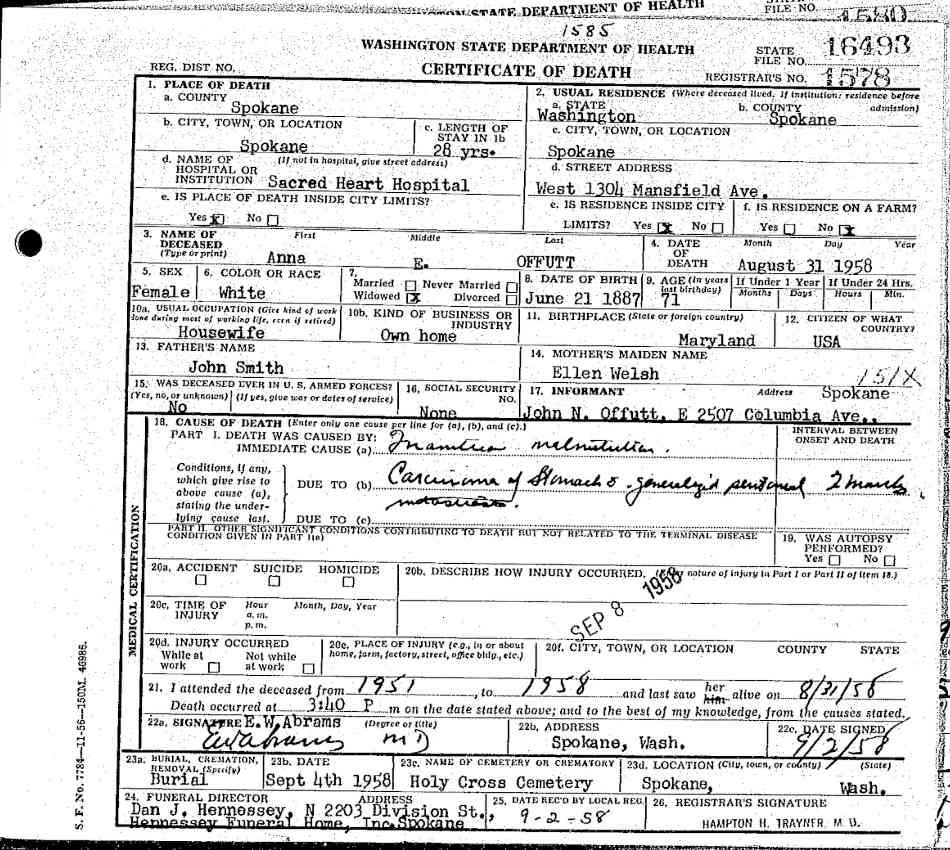 STATE DEPARTMENT OF HEALTH
FILE NO. 1580
1585
WASHINGTON STATE DEPARTMENT OF HEALTH
STATE FILE NO. 16493
REG. DIST NO.
CERTIFICATE OF DEATH
REGISTRAR'S NO. 1578
1. PLACE OF DEATH
a. COUNTY
Spokane
2. USUAL RESIDENCE (Where deceased lived. If institution: residence before admission)
a. STATE Washington
b. COUNTY Spokane
b. CITY, TOWN, OR LOCATION
Spokane
c. LENGTH OF STAY IN 1b
28 yrs.
c. CITY, TOWN, OR LOCATION
Spokane
d. NAME OF HOSPITAL OR INSTITUTION (If not in hospital, give street address)
Sacred Heart Hospital
d. STREET ADDRESS
West 1304 Mansfield Ave.
e. IS PLACE OF DEATH INSIDE CITY LIMITS?
Yes x No
e. IS RESIDENCE INSIDE CITY LIMITS? Yes x No
f. IS RESIDENCE ON A FARM?
Yes No x
3. NAME OF DECEASED (Type or print)
First Middle Last
Anna E. OFFUTT
4. DATE OF DEATH
Month Day Year
August 31 1958
5. SEX
Female
6. COLOR OR RACE
White
7.
Married Never Married
Widowed x Divorced
8. DATE OF BIRTH
June 21 1887
9. AGE (In years last birthday)
71
If Under 1 Year
Months Days
If Under 24 Hrs.
Hours Min.
10a. USUAL OCCUPATION (Give kind of work done during most of working life, even if retired)
Housewife
10b. KIND OF BUSINESS OR INDUSTRY
Own home
11. BIRTHPLACE (State or foreign country)
Maryland
12. CITIZEN OF WHAT COUNTRY?
USA
13. FATHER'S NAME
John Smith
14. MOTHER'S MAIDEN NAME
Ellen Welsh
151X
15. WAS DECEASED EVER IN U. S. ARMED FORCES?
(Yes, no, or unknown) (If yes, give war or dates of service)
No
16. SOCIAL SECURITY NO.
None
17. INFORMANT Address Spokane
John N. Offutt, E 2507 Columbia Ave.,
18. CAUSE OF DEATH (Enter only one cause per line for (a), (b), and (c).)
INTERVAL BETWEEN ONSET AND DEATH
PART I. DEATH WAS CAUSED BY:
IMMEDIATE CAUSE (a) Inanition malnutrition.
Conditions, if any, which give rise to above cause (a), stating the underlying cause last.
DUE TO (b) Carcinoma of Stomach & generalized peritoneal 2 months
metastases.
DUE TO (c)
PART II. OTHER SIGNIFICANT CONDITIONS CONTRIBUTING TO DEATH BUT NOT RELATED TO THE TERMINAL DISEASE CONDITION GIVEN IN PART I(a)
19. WAS AUTOPSY PERFORMED?
Yes No
MEDICAL CERTIFICATION
20a. ACCIDENT SUICIDE HOMICIDE
20b. DESCRIBE HOW INJURY OCCURRED. nature of injury in Part I or Part II of item 18.)
SEP 8 1958
20c. TIME OF INJURY
Hour Month, Day, Year
a. m.
p. m.
20d. INJURY OCCURRED
While at work Not while at work
20e. PLACE OF INJURY (e.g., in or about home, farm, factory, street, office bldg., etc.)
20f. CITY, TOWN, OR LOCATION COUNTY STATE
21. I attended the deceased from 1951, to 1958 and last saw her him alive on 8/31/58
Death occurred at 3:40 P m on the date stated above; and to the best of my knowledge, from the causes stated.
22a. SIGNATURE E.W.Abrams (Degree or title)
EWAbrams MD
22b. ADDRESS
Spokane, Wash.
22c. DATE SIGNED
9/2/58
23a. BURIAL, CREMATION, REMOVAL (Specify)
Burial
23b. DATE
Sept 4th 1958
23c. NAME OF CEMETERY OR CREMATORY
Holy Cross Cemetery
23d. LOCATION (City, town, or county) (State)
Spokane, Wash.
24. FUNERAL DIRECTOR ADDRESS
Dan J. Hennessey, N 2203 Division St.,
Hennessey Funeral Home, Inc. Spokane
25. DATE REC'D BY LOCAL REG.
9-2-58
26. REGISTRAR'S SIGNATURE
HAMPTON H. TRAYNER, M. D.
S. F. No. 7784—11-56—150M. 46986.